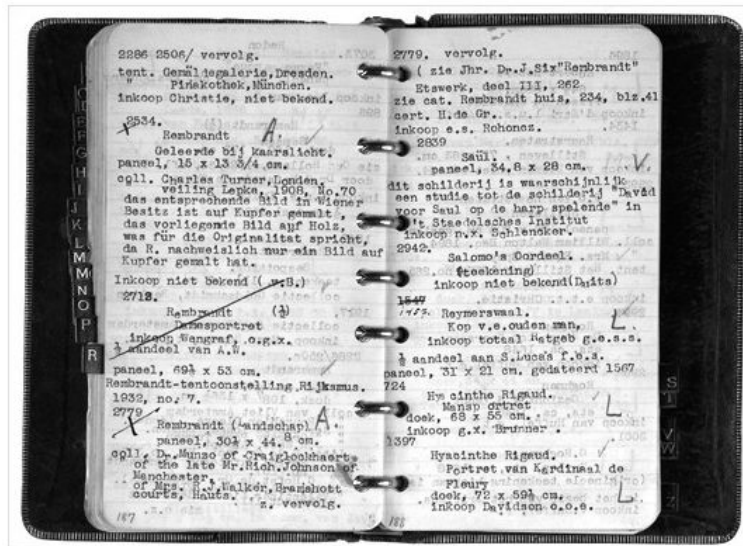 2286 2506/ vervolg.
tent. Gemäldegalerie, Dresden.
" Pinakothek, München.
inkoop Christie, niet bekend.
2534.
Rembrandt A.
Geleerde bij kaarslicht.
paneel, 15 x 13 3/4 cm.
coll. Charles Turner, Londen.
veiling Lepke, 1908, No.70
das entsprechende Bild in Wiener
Besitz ist auf Kupfer gemalt
das vorliegende Bild auf Holz,
was für die Originalitat spricht,
da R. nachweislich nur ein Bild auf
Kupfer gemalt hat.
Inkoop niet bekend ( v.B.)
2712.
Rembrandt (½)
Damesportret
inkoop Wengraf, o.g.x.
½ aandeel van A.W.
paneel, 69½ x 53 cm.
Rembrandt-tentoonstelling Rijksmus.
1932, no. 7.
2779
Rembrandt (Landschap) A.
paneel, 30½ x 44.8 cm.
coll. Dr. Munro of Craiglockhaert
of the late Mr. Rich. Johnson of
Manchester.
of Mrs. R.J. Walker, Bramshott
courts, Hauts.
z. vervolg.
187
2779. vervolg.
( zie Jhr. Dr. J. Six "Rembrandt"
Etswerk, deel III, 262
zie cat. Rembrandt huis, 234, blz.41
cert. H.de Gr.
inkoop e.s. Rohoncz.
2839
Saül. V.
paneel, 34,8 x 28 cm.
dit schilderij is waarschijnlijk
een studie tot de schilderij "David
voor Saul op de harp spelende" in
't Staedelsches Institut
inkoop n.x. Schlencker.
2942.
Salomo's Oordeel.
(teekening)
inkoop niet bekend
1547
Reymerswaal.
Kop v.e.ouden man, L.
inkoop totaal g.e.s.s.
½ aandeel aan S.Lucas f.e.s.
paneel, 31 x 21 cm. gedateerd 1567
724
Hyacinthe Rigaud.
Mansportret. L.
doek, 68 x 55 cm.
inkoop g.x. Brunner.
1397
Hyacinthe Rigaud.
Portret van Kardinaal de
Fleury
doek, 72 x 59½ cm. L.
inkoop Davidson o.o.e.
188
L
M
M
N
O
P
R
S
T
Z